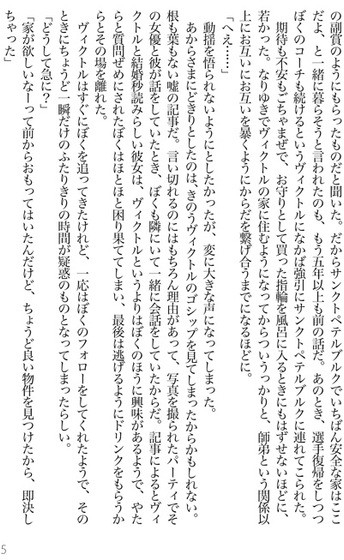 の副賞のようにもらったものだと聞いた。だからサンクトペテルブルクでいちばん安い家はここ
だよ、と一緒に暮らそうと言われたのも、もう五年以上も前の話だ。あのとき、選手復帰をしつつ
ぼくのコーチも続けるというヴィクトルになかば強引にサンクトペテルブルクに連れてこられた。
期待も不安もごちゃまぜで、お守りとして買った指輪を風呂に入るときにもはずせないほどに、
若かった。なりゆきでヴィクトルの家に住むようになってからついうっかりと、師弟という関係以
上にお互いにお互いを暴くようにからだを繋げ合うまでになるほどに。
「へえ……」
動揺を悟られないようにとしたかったが、変に大きな声になってしまった。
あからさまにどきりとしたのは、きのうヴィクトルのゴシップを見てしまったからかもしれない。
根も葉もない嘘の記事だ。言い切れるのにはもちろん理由があって、写真を撮られたパーティでそ
の女優と彼が話をしていたとき、ぼくも隣にいて一緒に会話をしていたからだ。記事によるとヴィ
クトルと結婚秒読みらしい彼女は、ヴィクトルというよりはぼくのほうに興味があるようで、やた
らと質問ぜめにされたぼくはほとほと困り果ててしまい、最後は逃げるようにドリンクをもらうか
らとその場を離れた。
ヴィクトルはすぐにぼくを追ってきたけれど、一応はぼくのフォローをしてくれたようで、その
ときにちょうど一瞬だけのふたりきりの時間が疑惑のものとなってしまったらしい。
「どうして急に？」
「家が欲しいなーって前からおもってはいたんだけど、ちょうど良い物件を見つけたから、即決し
ちゃった」
5